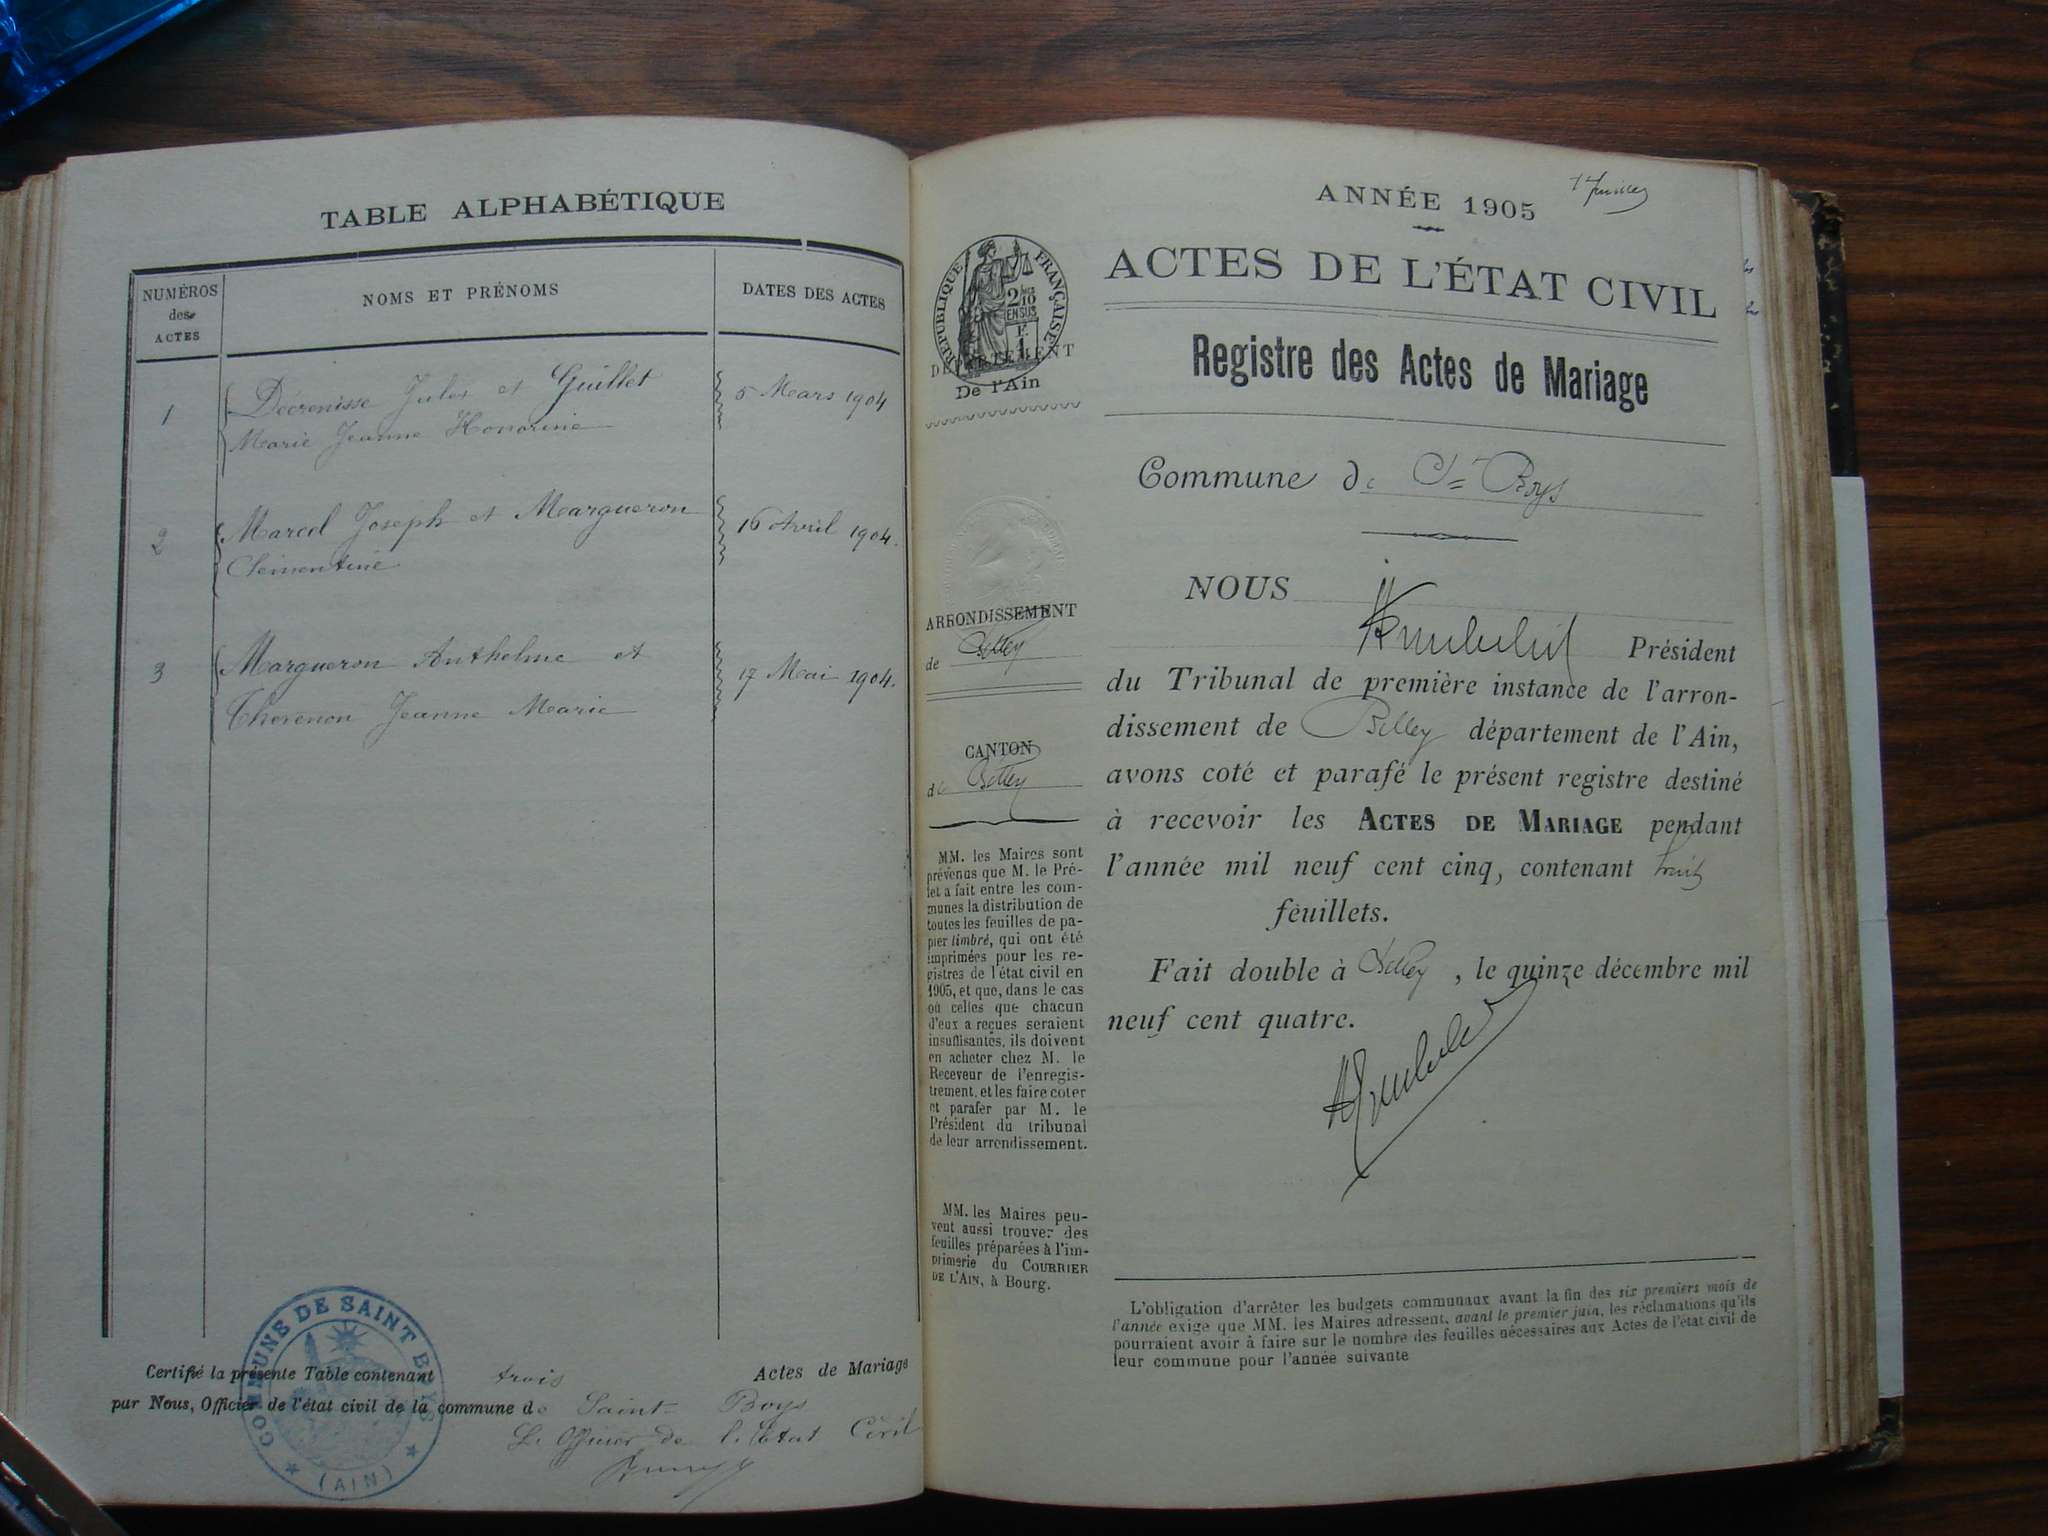 TABLE ALPHABÉTIQUE
NUMÉROS
des
ACTES
NOMS ET PRÉNOMS
DATES DES ACTES
1
Décrenisse Jules et Guillet
Marie Jeanne Honorine
5 Mars 1904
2
Marcel Joseph et Margueron
Clémentine
16 Avril 1904.
3
Margueron Anthelme et
Thevenon Jeanne Marie
17 Mai 1904.
Certifié la présente Table contenant trois Actes de Mariage
par Nous, Officier de l'état civil de la commune de Saint-Boys
L'Officier de l'état Civil
COMMUNE DE SAINT BOYS
(AIN)
ANNÉE 1905
ACTES DE L'ÉTAT CIVIL
RÉPUBLIQUE FRANÇAISE
2/10
EN SUS
DÉPARTEMENT
De l'Ain
Registre des Actes de Mariage
Commune de St Boys
ARRONDISSEMENT
de Belley
CANTON
de Belley
MM. les Maires sont
prévenus que M. le Pré-
fet a fait entre les com-
munes la distribution de
toutes les feuilles de pa-
pier timbré, qui ont été
imprimées pour les re-
gistres de l'état civil en
1905, et que, dans le cas
où celles que chacun
d'eux a reçues seraient
insuffisantes, ils doivent
en acheter chez M. le
Receveur de l'enregis-
trement, et les faire coter
et parafer par M. le
Président du tribunal
de leur arrondissement.
MM. les Maires peu-
vent aussi trouver des
feuilles préparées à l'im-
primerie du COURRIER
DE L'AIN, à Bourg.
NOUS
Président
du Tribunal de première instance de l'arron-
dissement de Belley département de l'Ain,
avons coté et parafé le présent registre destiné
à recevoir les ACTES DE MARIAGE pendant
l'année mil neuf cent cinq, contenant huit
feuillets.
Fait double à Belley, le quinze décembre mil
neuf cent quatre.
L'obligation d'arrêter les budgets communaux avant la fin des six premiers mois de
l'année exige que MM. les Maires adressent, avant le premier juin, les réclamations qu'ils
pourraient avoir à faire sur le nombre des feuilles nécessaires aux Actes de l'état civil de
leur commune pour l'année suivante